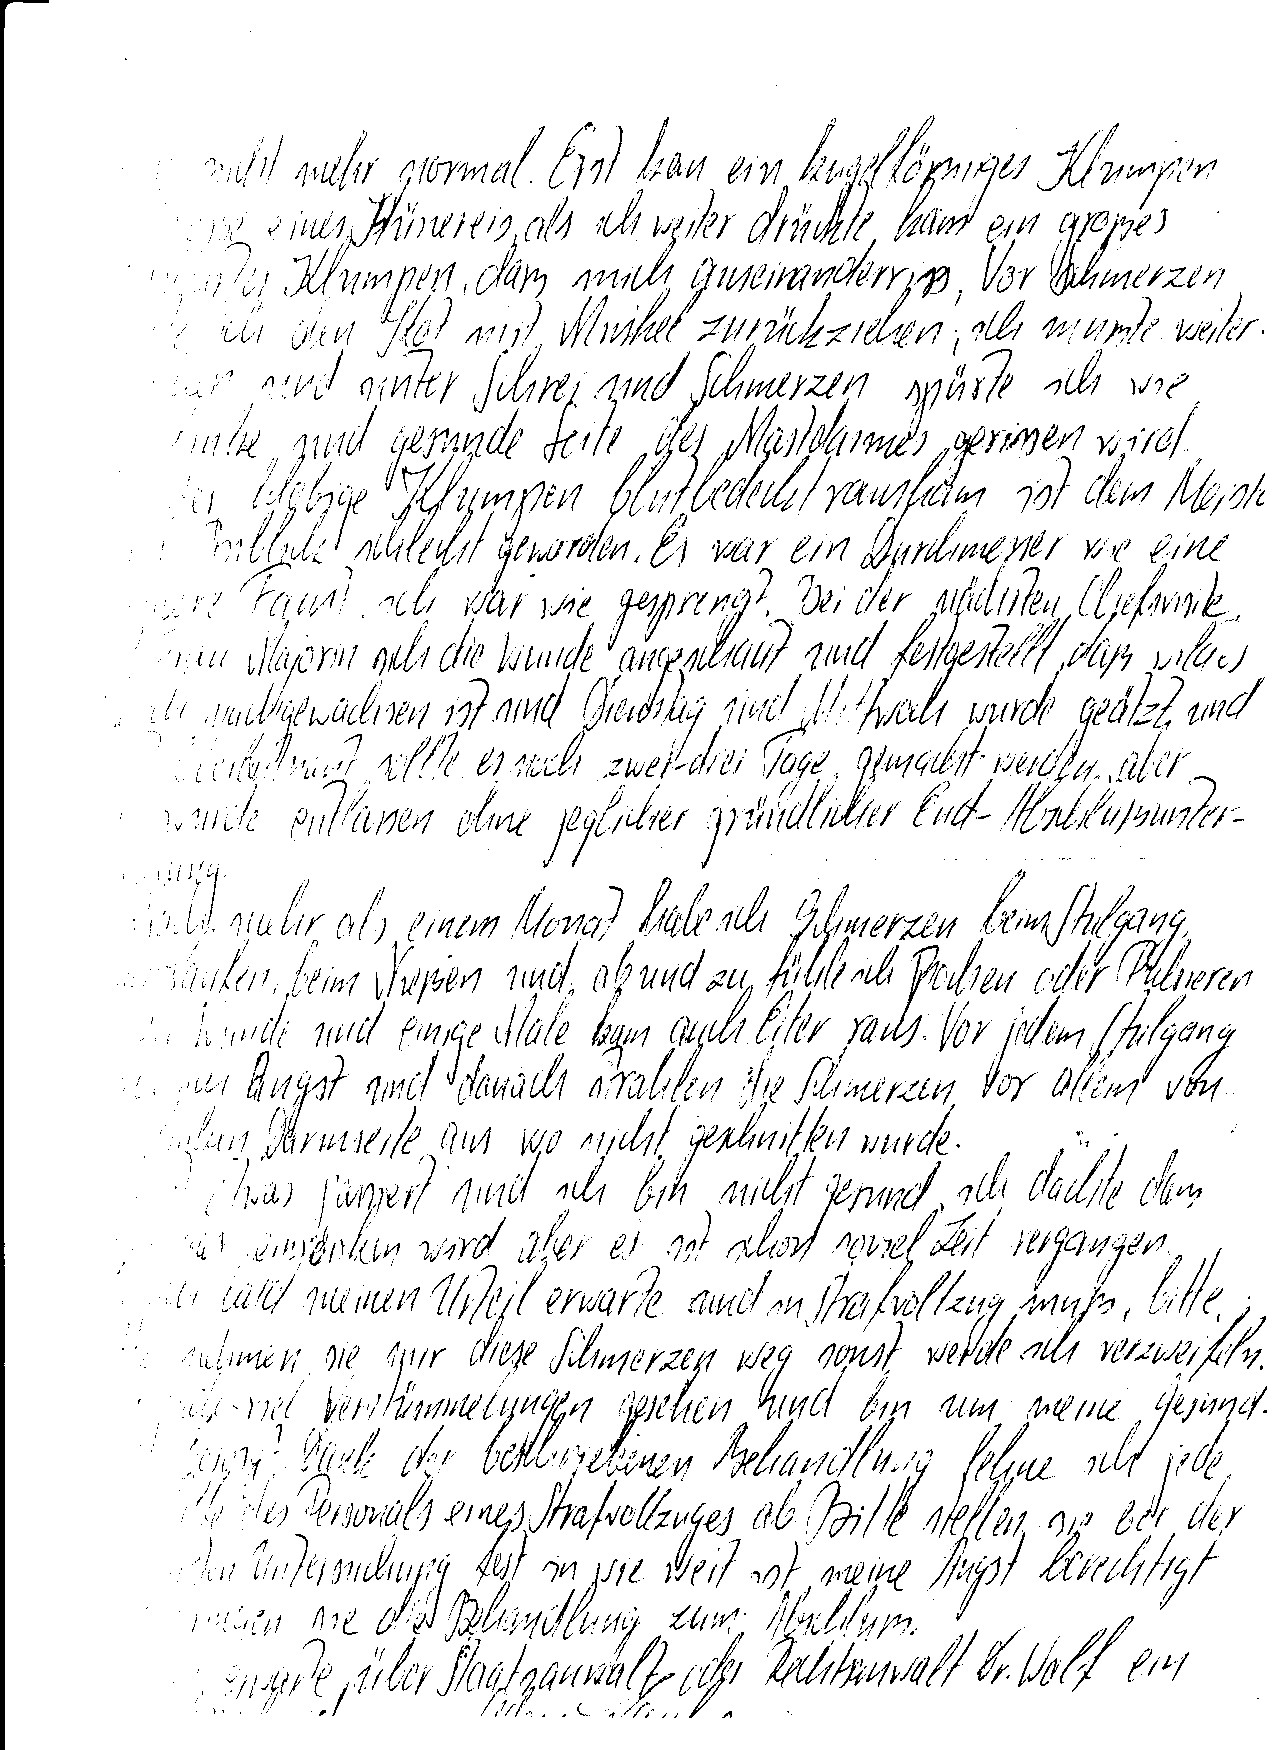 nicht mehr normal. Erst kam ein kugelförmiges Klumpen
eines Hünereis, als ich weiter drückte kam ein großes
Klumpen, dass mich auseinanderriss. Vor Schmerzen
ich den Kot mit Muskel zurückziehen, ich musste weiter
und unter Schrei und Schmerzen spürte ich wie
linke und gesunde Seite des Mastdarmes gerissen wird.
klobige Klumpen blutbedeckt rauskam ist dem Meist
schlecht geworden. Es war ein Durchmesser wie eine
Faust, ich war wie gesprengt. Bei der nächsten Chefvisite
Frau Majorin sich die Wunde angeschaut und festgestellt, dass
gewachsen ist und Dienstag und Mittwoch wurde geätzt und
sollte es noch zwei-drei Tage gemacht werden, aber
wurde entlassen ohne jeglicher gründlicher End-Abschlussunter-
mehr als einem Monat habe ich Schmerzen beim Stulgang,
beim Niessen und ab und zu fühle ich Pochen oder Pulsieren
Wunde und einige Male kam auch Eiter raus. Vor jedem Stulgang
Angst und danach strahlen die Schmerzen vor allem von
Darmseite aus wo nicht geschnitten wurde.
etwas passiert und ich bin nicht gesund, ich dachte dass
wird aber es ist schon soviel Zeit vergangen.
bald meinen Urteil erwarte und in Strafvollzug muss, bitte,
nehmen sie mir diese Schmerzen weg sonst werde ich verzweifeln.
viel Verstümmelungen gesehen und bin um meine Gesund-
Dank der beschriebenen Behandlung lehne ich jede
des Personals eines Strafvollzuges ab. Bitte stellen sie bei der
Untersuchung fest in wie weit ist meine Angst berechtigt
sie die Behandlung zum Abschluss.
über Staatsanwalt oder Rechtsanwalt Dr. Wolf ein